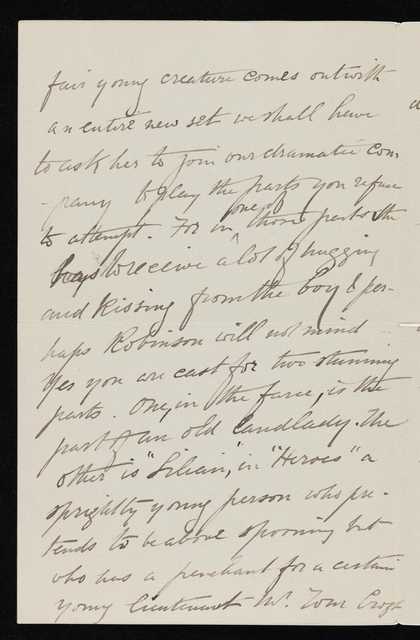 fair young creature comes out with
an entire new set we shall have
to ask her to join our dramatic com
-pany to play the parts you refuse
to attempt. For in one of those parts she
has to receive a lot of hugging
and kissing from the boy & per-
haps Robinson will not mind
Yes you are cast for two stunning
parts. One, in the farce, is the
part of an old landlady. The
other is "Lilian," in "Heroes" a
sprightly young person who pre-
tends to be above spooning but
who has a penchant for a certain
young lieutenant Mr. Tom